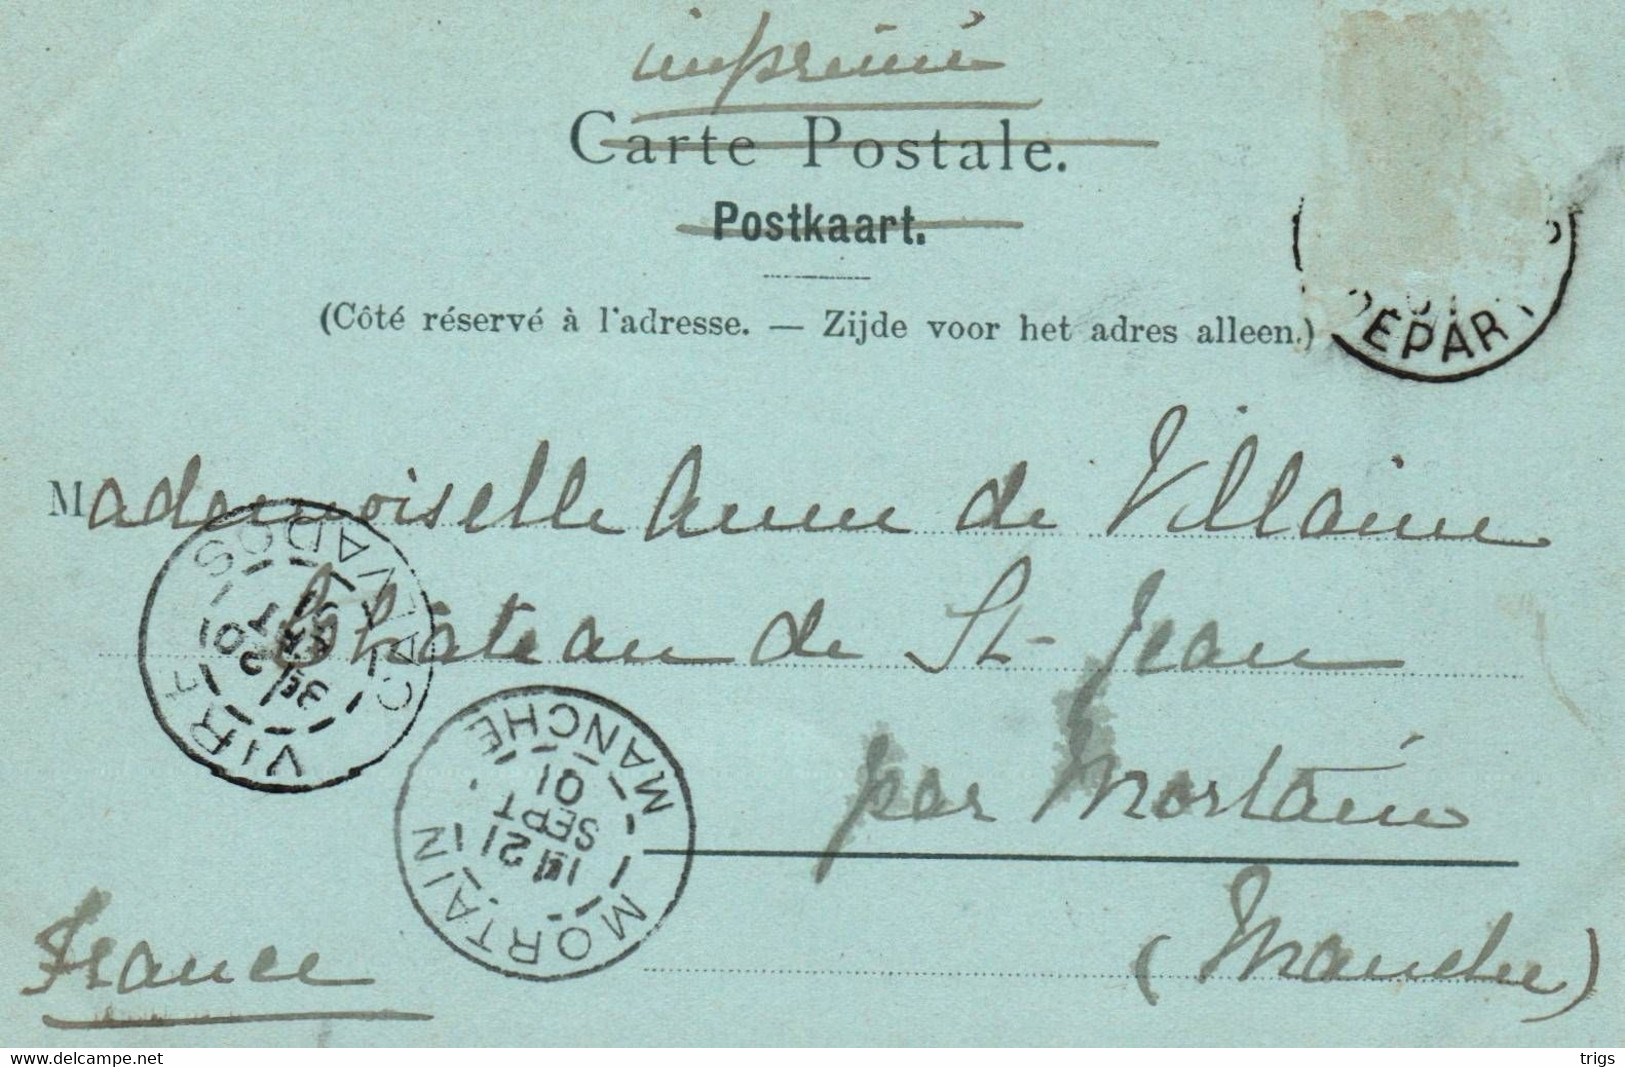 imprimé
Carte Postale.
Postkaart.
(Côté réservé à l'adresse. — Zijde voor het adres alleen.)
DEPART
Mademoiselle Anne de Villaine
Château de St-Jean
par Mortain
(Manche)
France
VIRE CALVADOS
20
MORTAIN MANCHE
21
SEPT
01
www.delcampe.net
trigs